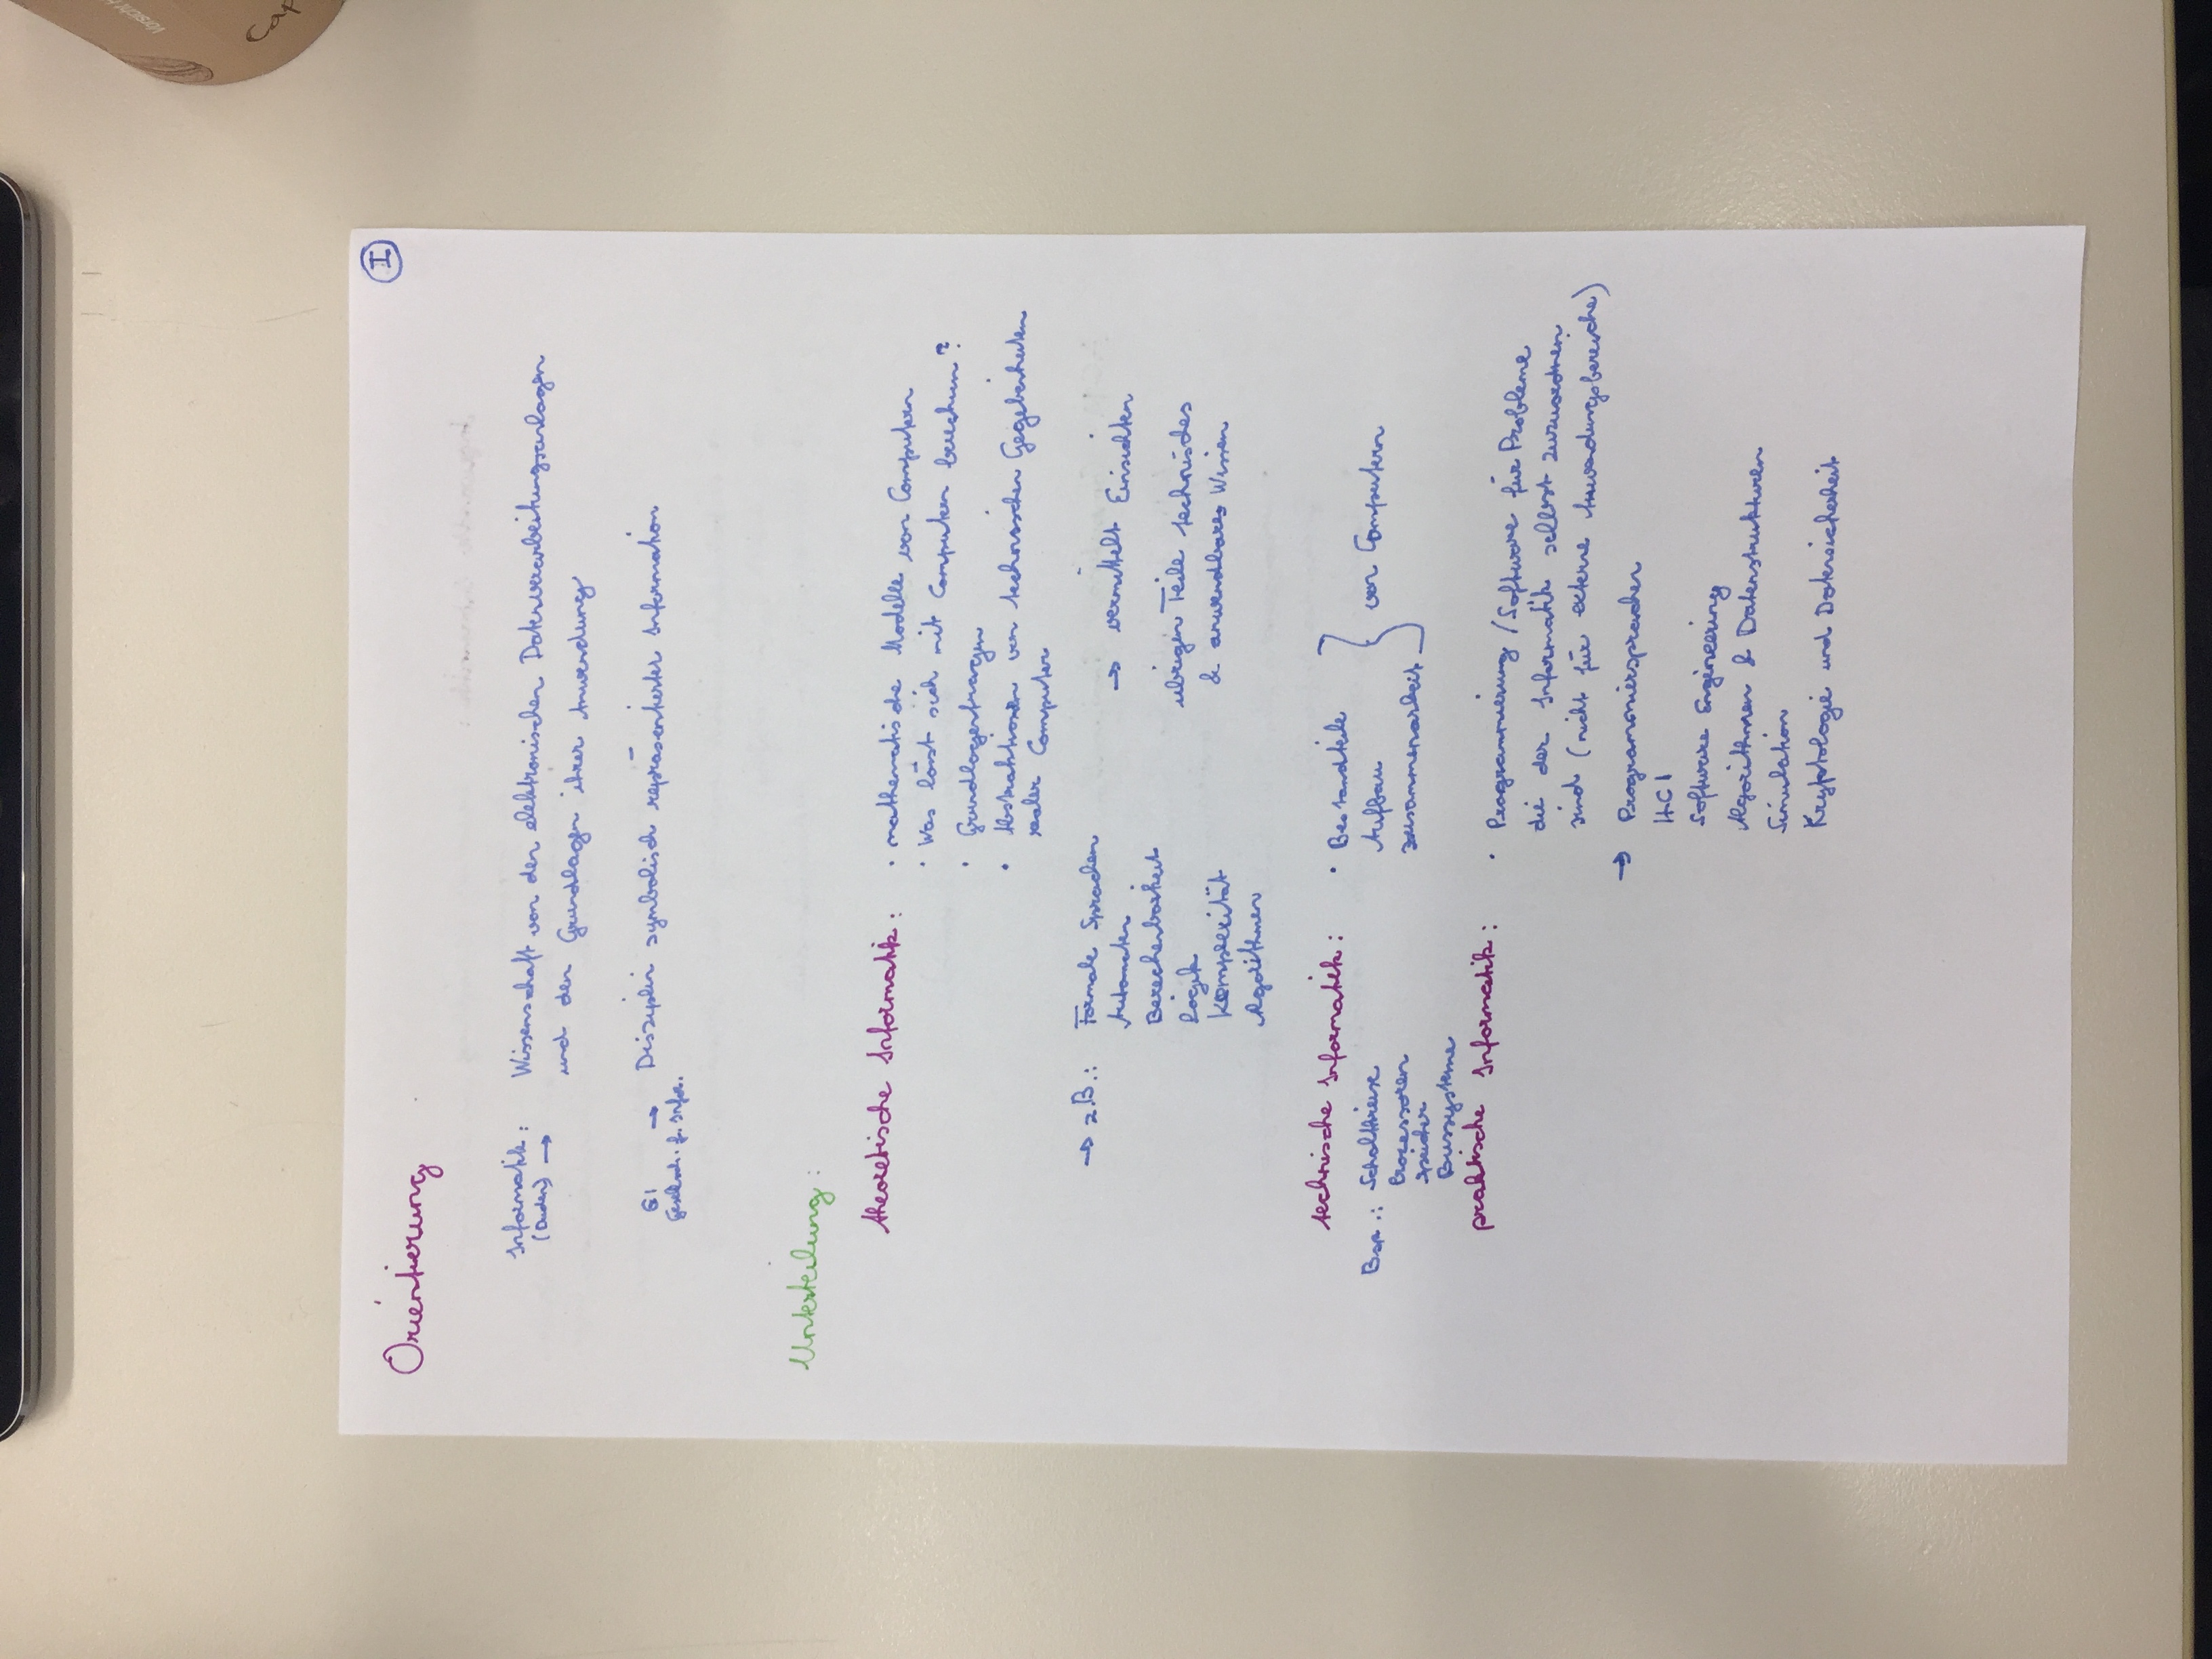 I
Orientierung
Informatik: Wissenschaft von den elektronischen Datenverarbeitungsanlagen
(Duden) → und den Grundlagen ihrer Anwendung
GI → Disziplin symbolisch repräsentierter Information
Gesellsch. f. Infor.
Unterteilung:
theoretische Informatik: · mathematische Modelle von Computern
· Was lässt sich mit Computern berechnen?
· Grundlagenfragen
· Abstraktionen von technischen Gegebenheiten
realer Computer
→ z.B.: Formale Sprachen
Automaten
Berechenbarkeit
Logik
Komplexität
Algorithmen
→ vermittelt Einsichten
übrigen Teile technisches
& anwendbares Wissen
technische Informatik: · Bestandteile
Aufbau
Zusammenarbeit
von Computern
Bsp.: Schaltkreise
Prozessoren
Speicher
Bussysteme
praktische Informatik: · Programmierung / Software für Probleme
die der Informatik selbst zuzuordnen
sind (nicht für externe Anwendungsbereiche)
→ Programmiersprachen
HCI
Software Engineering
Algorithmen & Datenstrukturen
Simulation
Kryptologie und Datensicherheit
Vorsicht
Cap